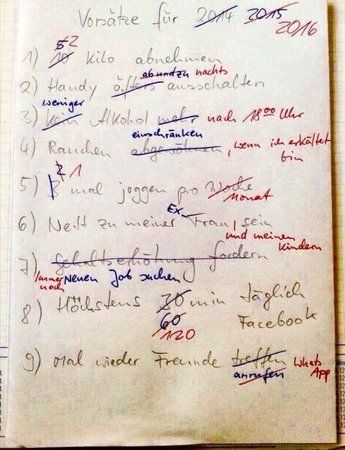 Vorsätze für 2014 2015 2016
1) 10 5 2 Kilo abnehmen
2) Handy öfters ab und zu nachts ausschalten
3) Kein weniger Alkohol mehr nach 18 00 Uhr
4) Rauchen abgewöhnen einschränken, wenn ich erkältet bin
5) 3 2 1 mal joggen pro Woche Monat
6) Nett zu meiner Ex-Frau, sein und meinen Kindern
7) Gehaltserhöhung fordern
Immer noch Neuen Job suchen
8) Höchstens 30 min täglich
60 Facebook
120
9) Mal wieder Freunde treffen WhatsApp
anrufen